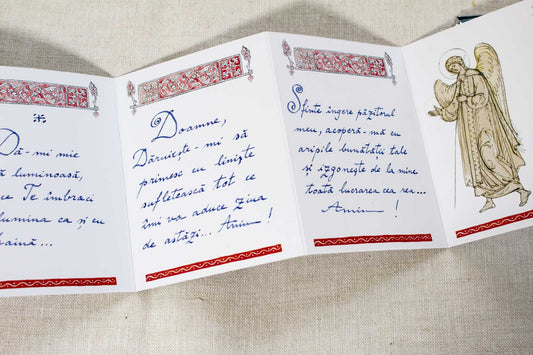 Dă-mi mie
luminoasă,
ce Te îmbraci
lumina ca și cu
haină...
Doamne,
Dăruiește-mi să
primesc cu liniște
sufletească tot ce
îmi va aduce ziua
de astăzi... Amin!
Sfinte îngere păzitorul
meu, acoperă-mă cu
aripile bunătății tale
și izgonește de la mine
toată lucrarea cea rea...
Amin!